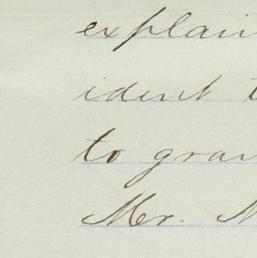 explain
ident t
to gran
Mr. N